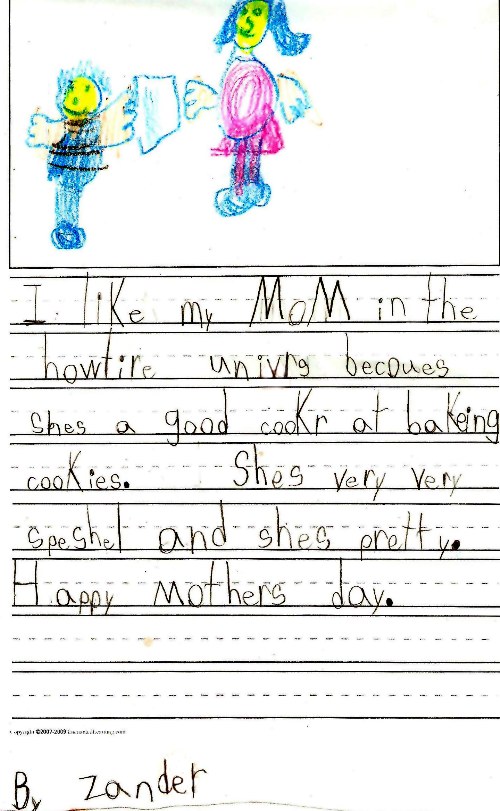 I like my MoM in the
howtire univrs becoues
shes a good cookr at bakeing
cookies. Shes very very
speshel and shes pretty.
Happy Mothers day.
Copyright ©2007-2009
By Zander